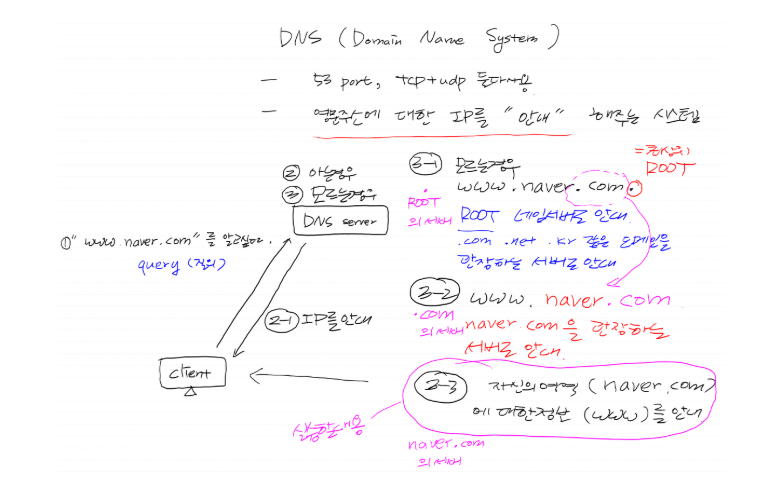 DNS (Domain Name System)
— 53 port, tcp+udp 둘다사용
— 영문주소에 대한 IP를 "안내" 해주는 시스템
② 아는경우
③ 모르는경우
DNS server
① "www.naver.com"를 알고싶다.
query (질의)
②-1 IP를 안내
client
③-1 모르는경우
=최상위
ROOT
www.naver.com.
ROOT
의 서버
ROOT 네임서버로 안내
.com .net .kr 같은 도메인을
관장하는 서버로 안내
③-2 www.naver.com
.com
의 서버
naver.com을 관장하는
서버로 안내.
3-3 자신의영역 (naver.com)
에 대한정보 (www)를 안내
실습할내용
naver.com
의 서버